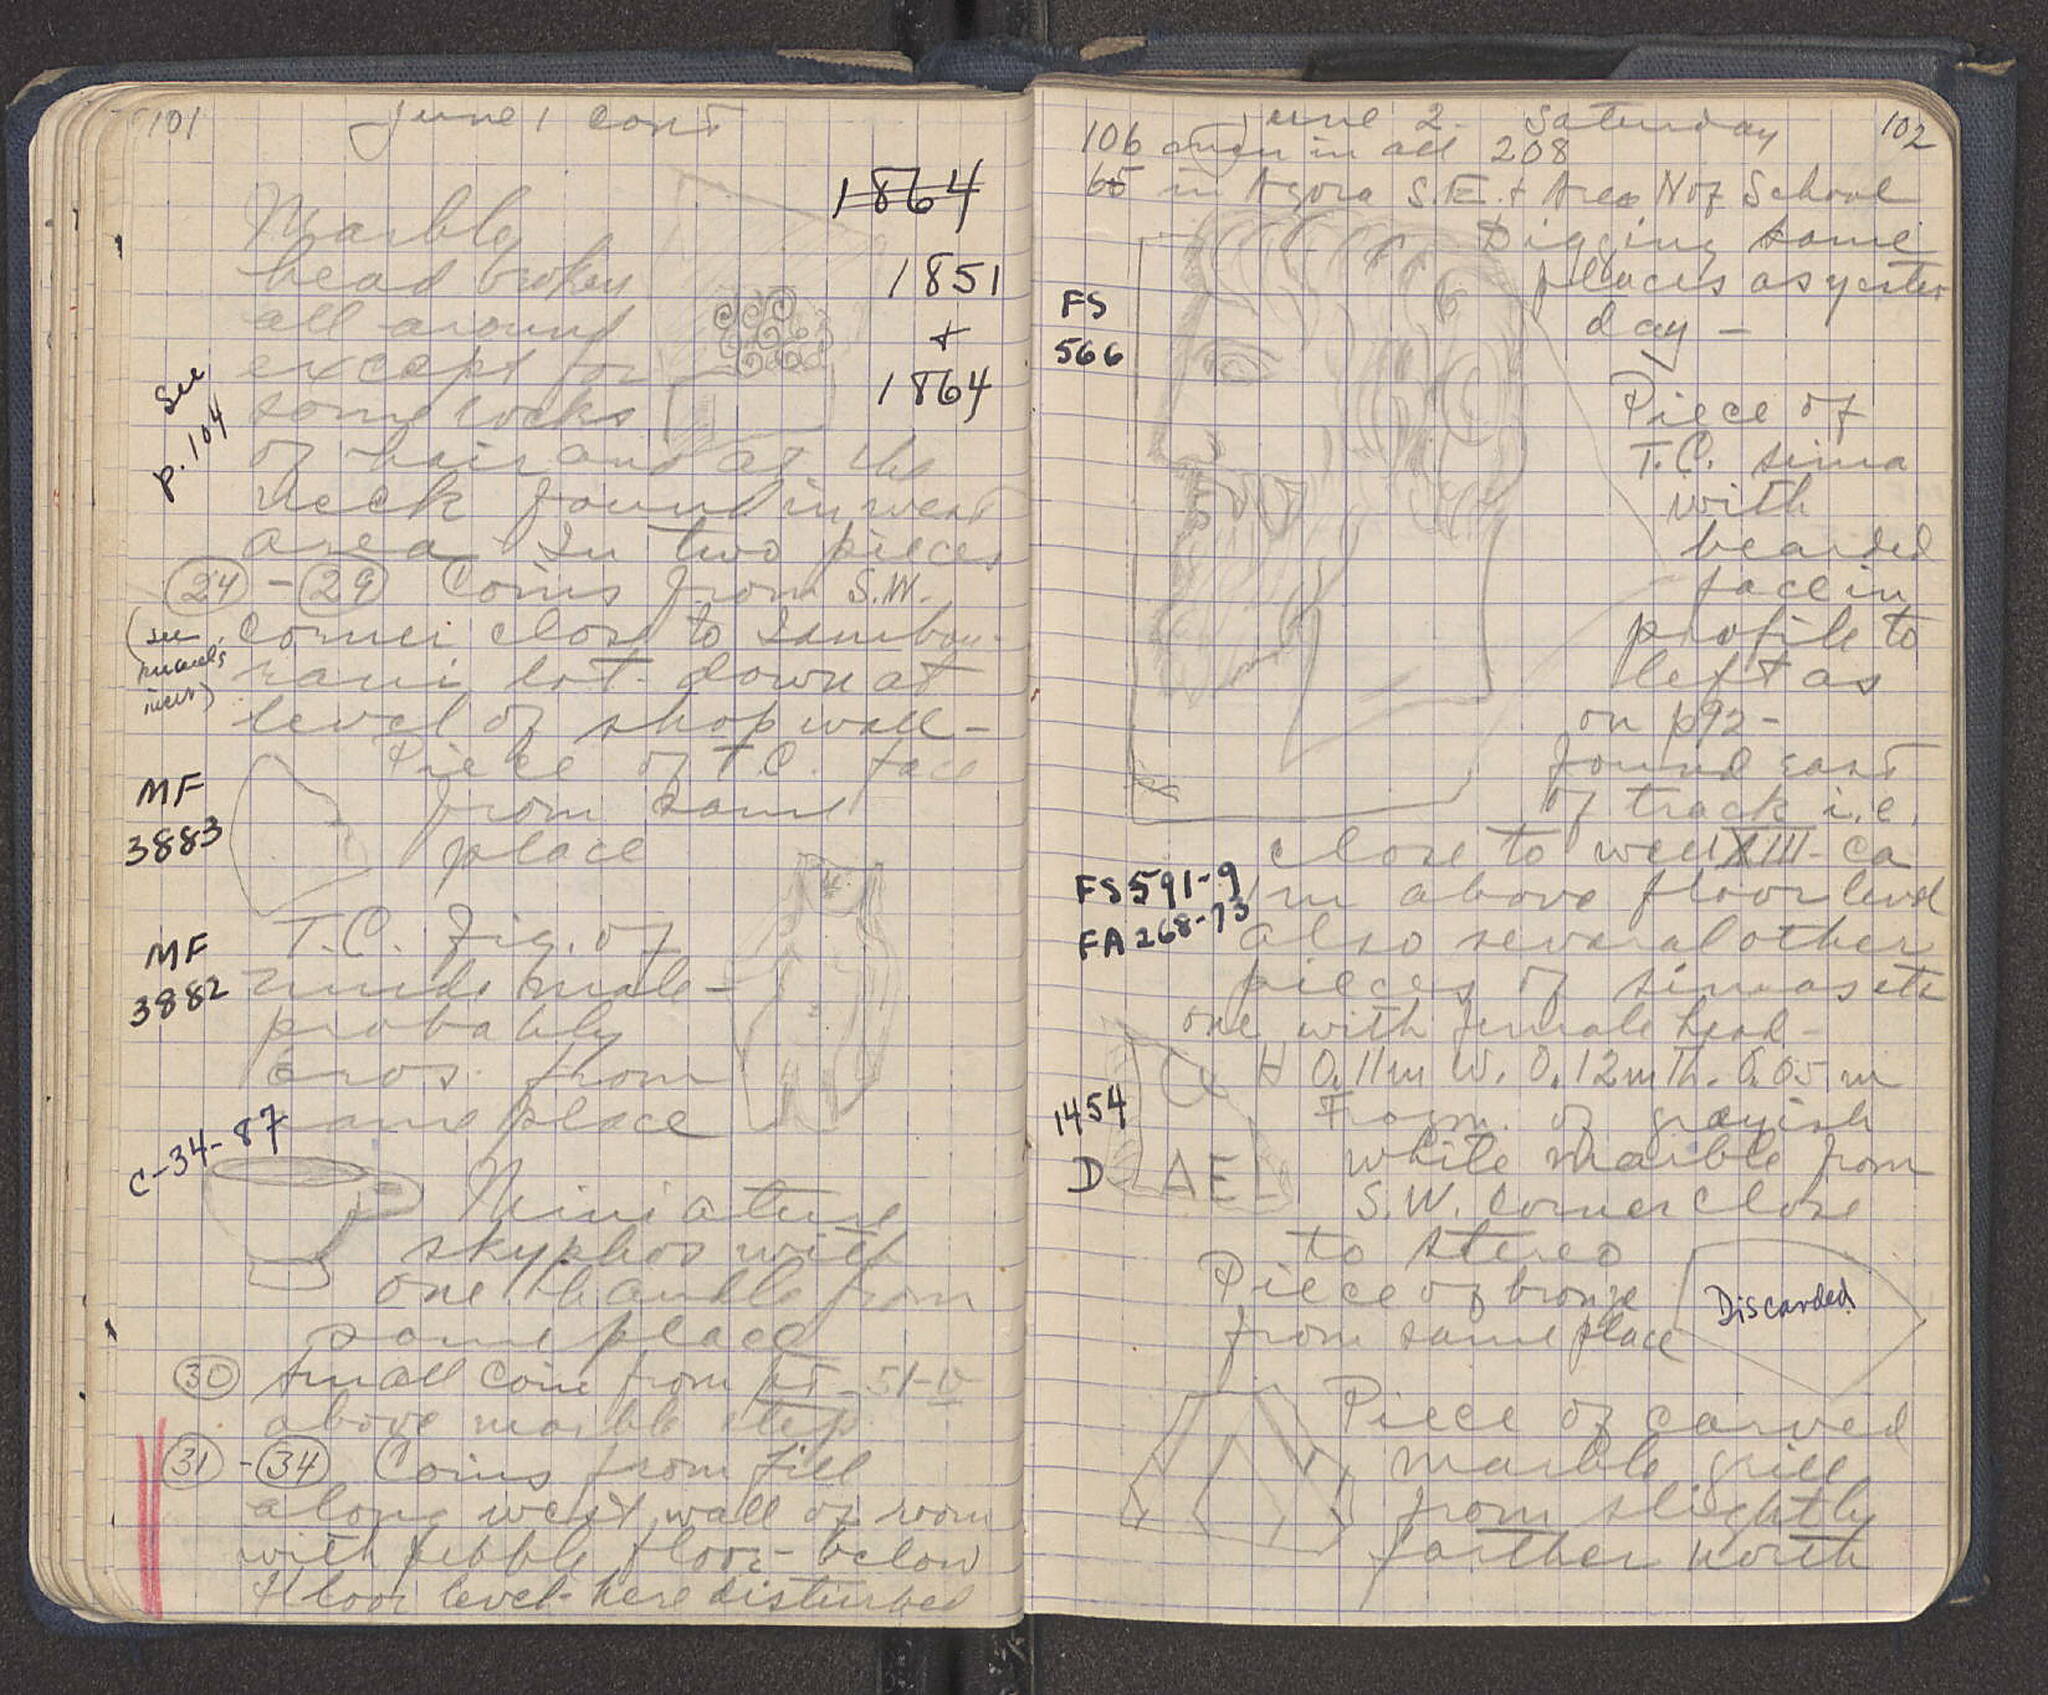 101 June 1 cont
1864
Marble
head broken
1851
all around
+
except for
1864
some locks
See
p. 104
of hair and at the
neck found in west
area In two pieces
24 - 29 Coins from S.W.
(see
corner close to
lot. down at
level of shop wall -
Piece of T.C. face
MF
3883
from same
place
T.C. Fig. of
MF
3882
nude male -
probably
Eros. from
same place
C-34-87
Miniature
skyphos with
one handle from
same place
30 Small coin from 51-
above marble step
31 - 34 Coins from fill
along west wall of room
with pebble floor - below
floor level - here disturbed
June 2. Saturday 102
106 men in all 208
65 in Agora S.E. + Area N of School
Digging same
places as yester
day -
FS
566
Piece of
T.C. sima
with
bearded
face in
profile to
left as
on p92 -
found east
of track i.e.
close to well XIII - ca
FS 591-9
1 m above floor level
FA 268-73
also several other
pieces of simas etc
one with female head -
H 0.11m W. 0.12m Th. 0.05 m
1454
Fragm. of grayish
D AEL
white marble from
S.W. corner close
to stereo
Piece of bronze
from same place
Discarded
Piece of carved
marble grill
from slightly
farther north